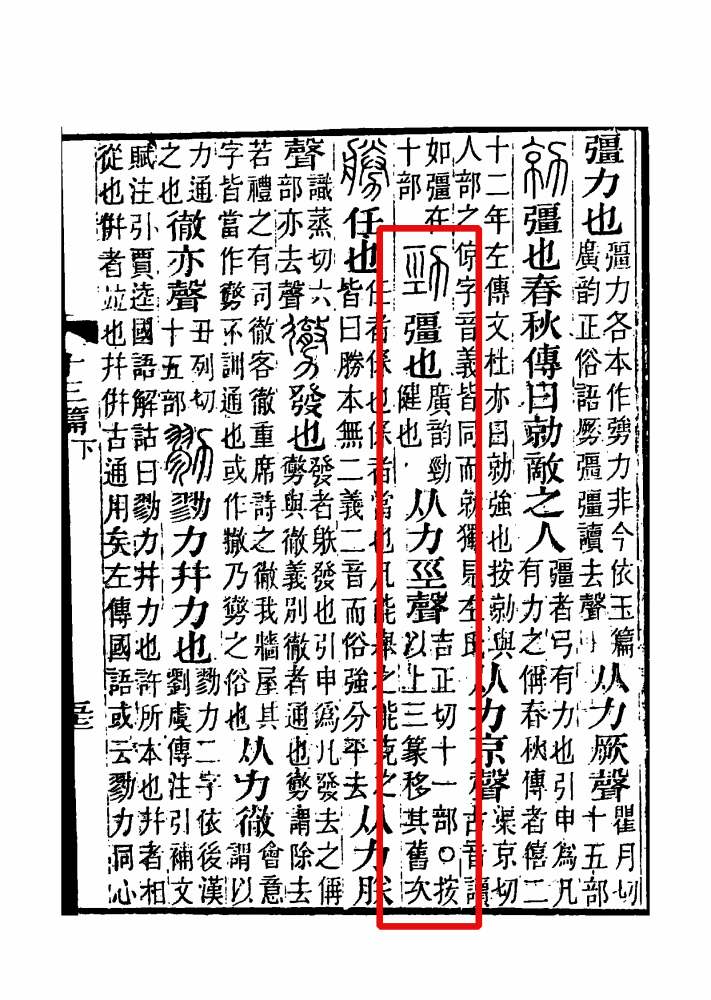 彊力也彊力各本作勥力非今依玉篇廣韵正俗語勥彊彊讀去聲从力厥聲瞿月切十五部
勍彊也春秋傳曰勍敵之人彊者弓有力也引申爲凡有力之偁春秋傳者僖二
十二年左傳文杜亦曰勍強也按勍與人部之倞字音義皆同而勍獨見左氏从力京聲渠京切古音讀
如彊在十部勁彊也廣韵勁健也从力巠聲吉正切十一部○按以上三篆移其舊次
勝任也任者保也保者當也凡能舉之能克之皆曰勝本無二義二音而俗強分平去从力朕
聲識蒸切六部亦去聲勶發也發者䠶發也引申爲凡發去之偁勶與徹義別徹者通也勶謂除去
若禮之有司徹客徹重席詩之徹我牆屋其字皆當作勶不訓通也或作撤乃勶之俗也从力徹會意謂以
力通之也徹亦聲丑列切十五部勠勠力幷力也勠力二字依後漢劉虞傳注引補文
賦注引賈逵國語解詁曰勠力幷力也許所本也幷者相從也倂者竝也幷倂古通用矣左傳國語或云勠力同心
十三篇下